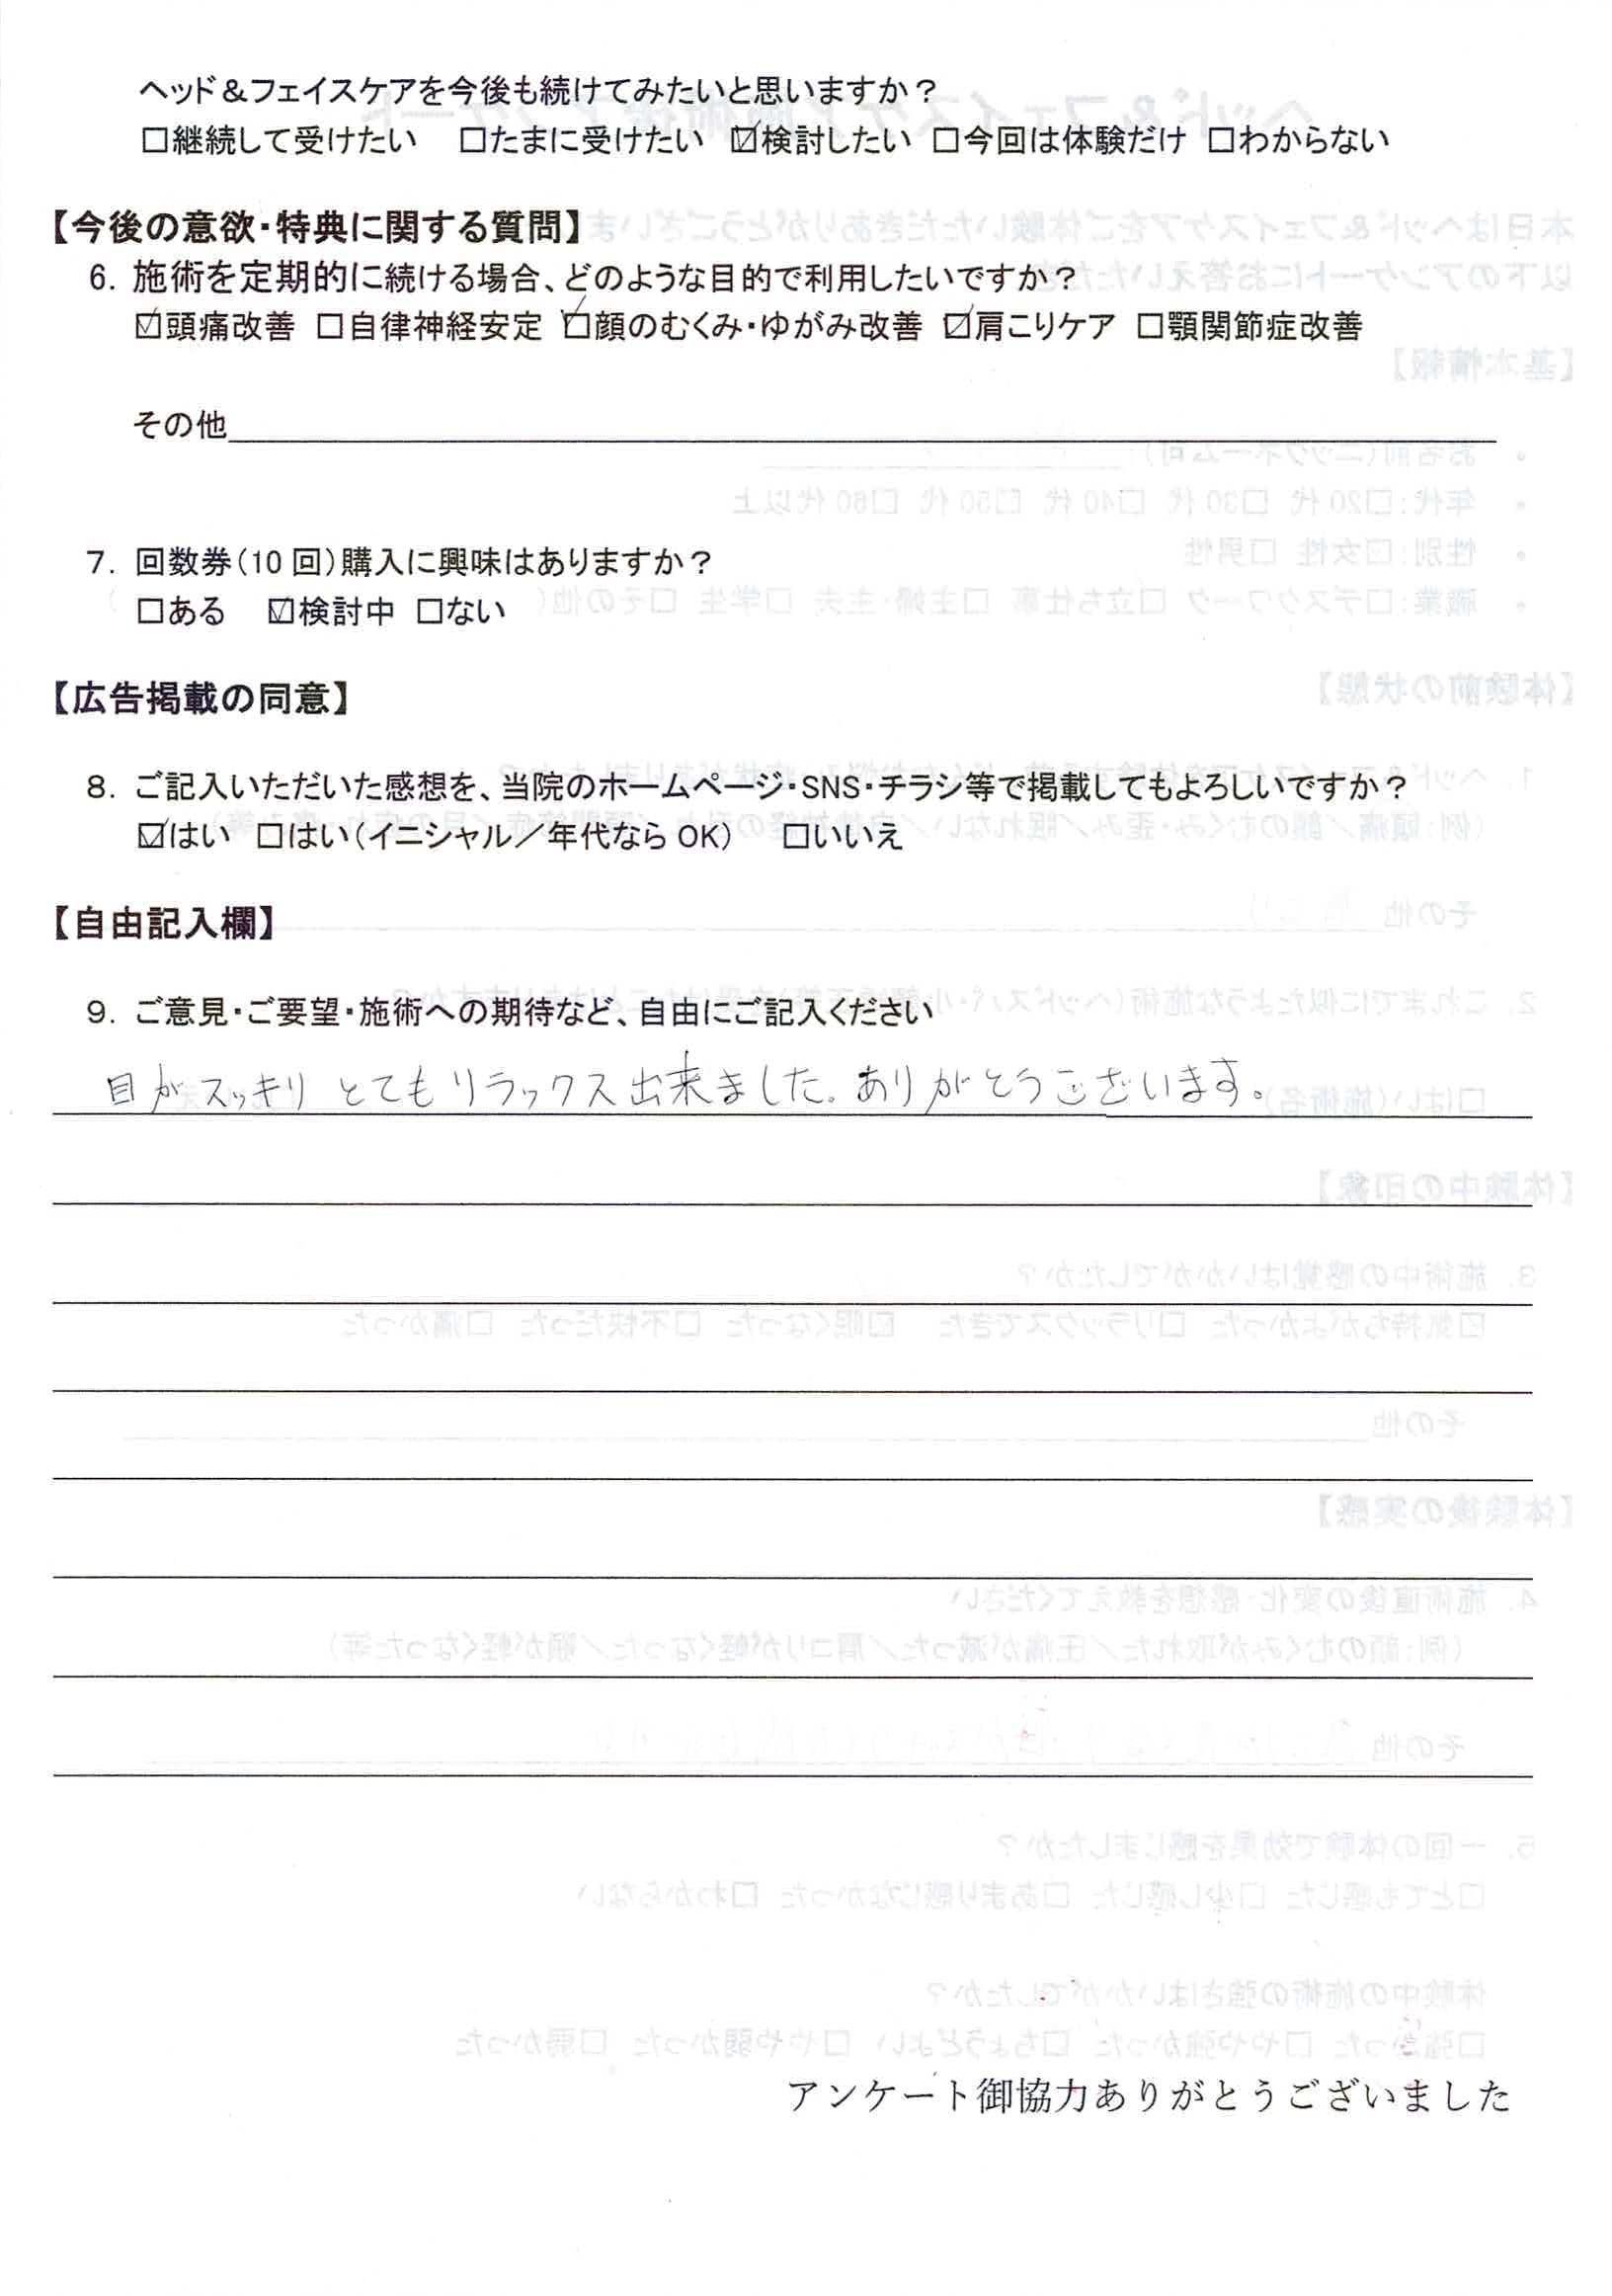 ヘッド＆フェイスケアを今後も続けてみたいと思いますか？
□継続して受けたい　□たまに受けたい　☑検討したい　□今回は体験だけ　□わからない
【今後の意欲・特典に関する質問】
6. 施術を定期的に続ける場合、どのような目的で利用したいですか？
☑頭痛改善　□自律神経安定　☑顔のむくみ・ゆがみ改善　☑肩こりケア　□顎関節症改善
その他
7. 回数券（10 回）購入に興味はありますか？
□ある　☑検討中　□ない
【広告掲載の同意】
8. ご記入いただいた感想を、当院のホームページ・SNS・チラシ等で掲載してもよろしいですか？
☑はい　□はい（イニシャル／年代なら OK）　□いいえ
【自由記入欄】
9. ご意見・ご要望・施術への期待など、自由にご記入ください
目がスッキリ とてもリラックス出来ました。ありがとうございます。
アンケート御協力ありがとうございました